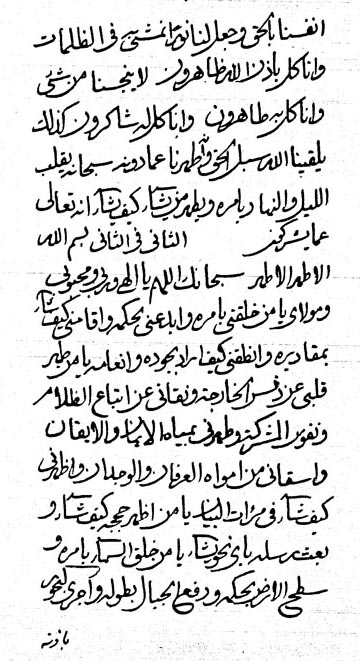 انفسنا بالحق وجعل لنا نورا نمشي في الظلمات
وانا كل باذن الله ظاهرون لا ينجسنا من شيء
وانا كل به طاهرون وانا كل له شاكرون كذلك
يلقينا الله سبل الحق واطهرنا عما دونه سبحانه يقلب
الليل والنهار بامره ويطهر من يشاء كيف يشاء انه تعالى
عما يشركون الثاني في الثاني بسم الله
الاطهر الاطهر سبحانك اللهم يا الهي وربي ومحبوبي
ومولاي يا من خلقني بامره وابدعني بحكمه واقامني كيف شاء
بمقاديره وانطقني كيف اراد بجوده وانعامه يا من طهر
قلبي عن دنس الخارجة ونقاني عن اتباع الظلام
ونفوس المشركة وطهرني بمياه الايمان والايقان
واسقاني من امواه العرفان والوجدان واظهرني
كيف شاء في مرات البيان يا من اظهر حججه كيف شاء و
بعث رسله باي نحو شاء يا من خلق السماء بامره و
سطح الارض بحكمه ورفع الجبال بطوله واجرى البحور
باذنه